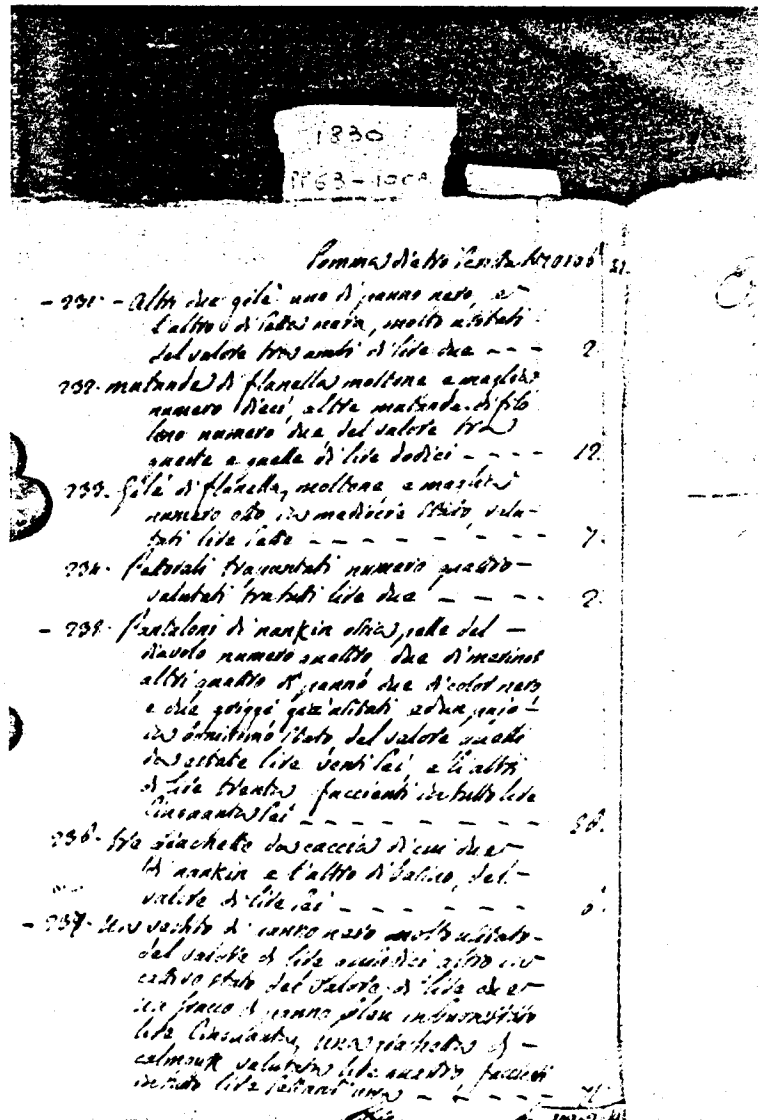 1830
Somma dietro
- 231 - Altri due gilè uno di panno nero, e
l'altro di seta nera, molto usitati
del valore tra ambi di lire due - - - 2.
232. mutande di flanella moltone e maglia
numero dieci, altre mutande di filo
lino numero due del valore tra
queste e quelle di lire dodici - - - - 12.
233. Gilè di flanella, moltone e maglia
numero otto in mediocre stato, valu-
tati lire sette - - - - - - - - 7.
234. Pettorali trapuntati numero quattro
valutati tra tutti lire due - - - - 2.
- 235. Pantaloni di nankin ossia pelle del -
diavolo numero quattro due di merinos
altri quattro di panno due di color nero
e due griggi già usitati ed un paio
in stato del valore quelli
da estate lire venti sei e li altri
di lire trenta facienti in tutto lire
Cinquanta sei - - - - - - - 56.
236. tre giachette da caccia di cui due
di nankin e l'altro di satino, del
valore di lire sei - - - - - 6.
- 237. Un vechio di panno nero molto usitato
del valore di lire quindici altro in
cativo stato del valore di lire due
un fracco di panno bleu in buon stato
lire Cinquanta, una giachetta di -
calmouk valutata lire quattro facienti
in tutto lire settant'una - - - - 71.